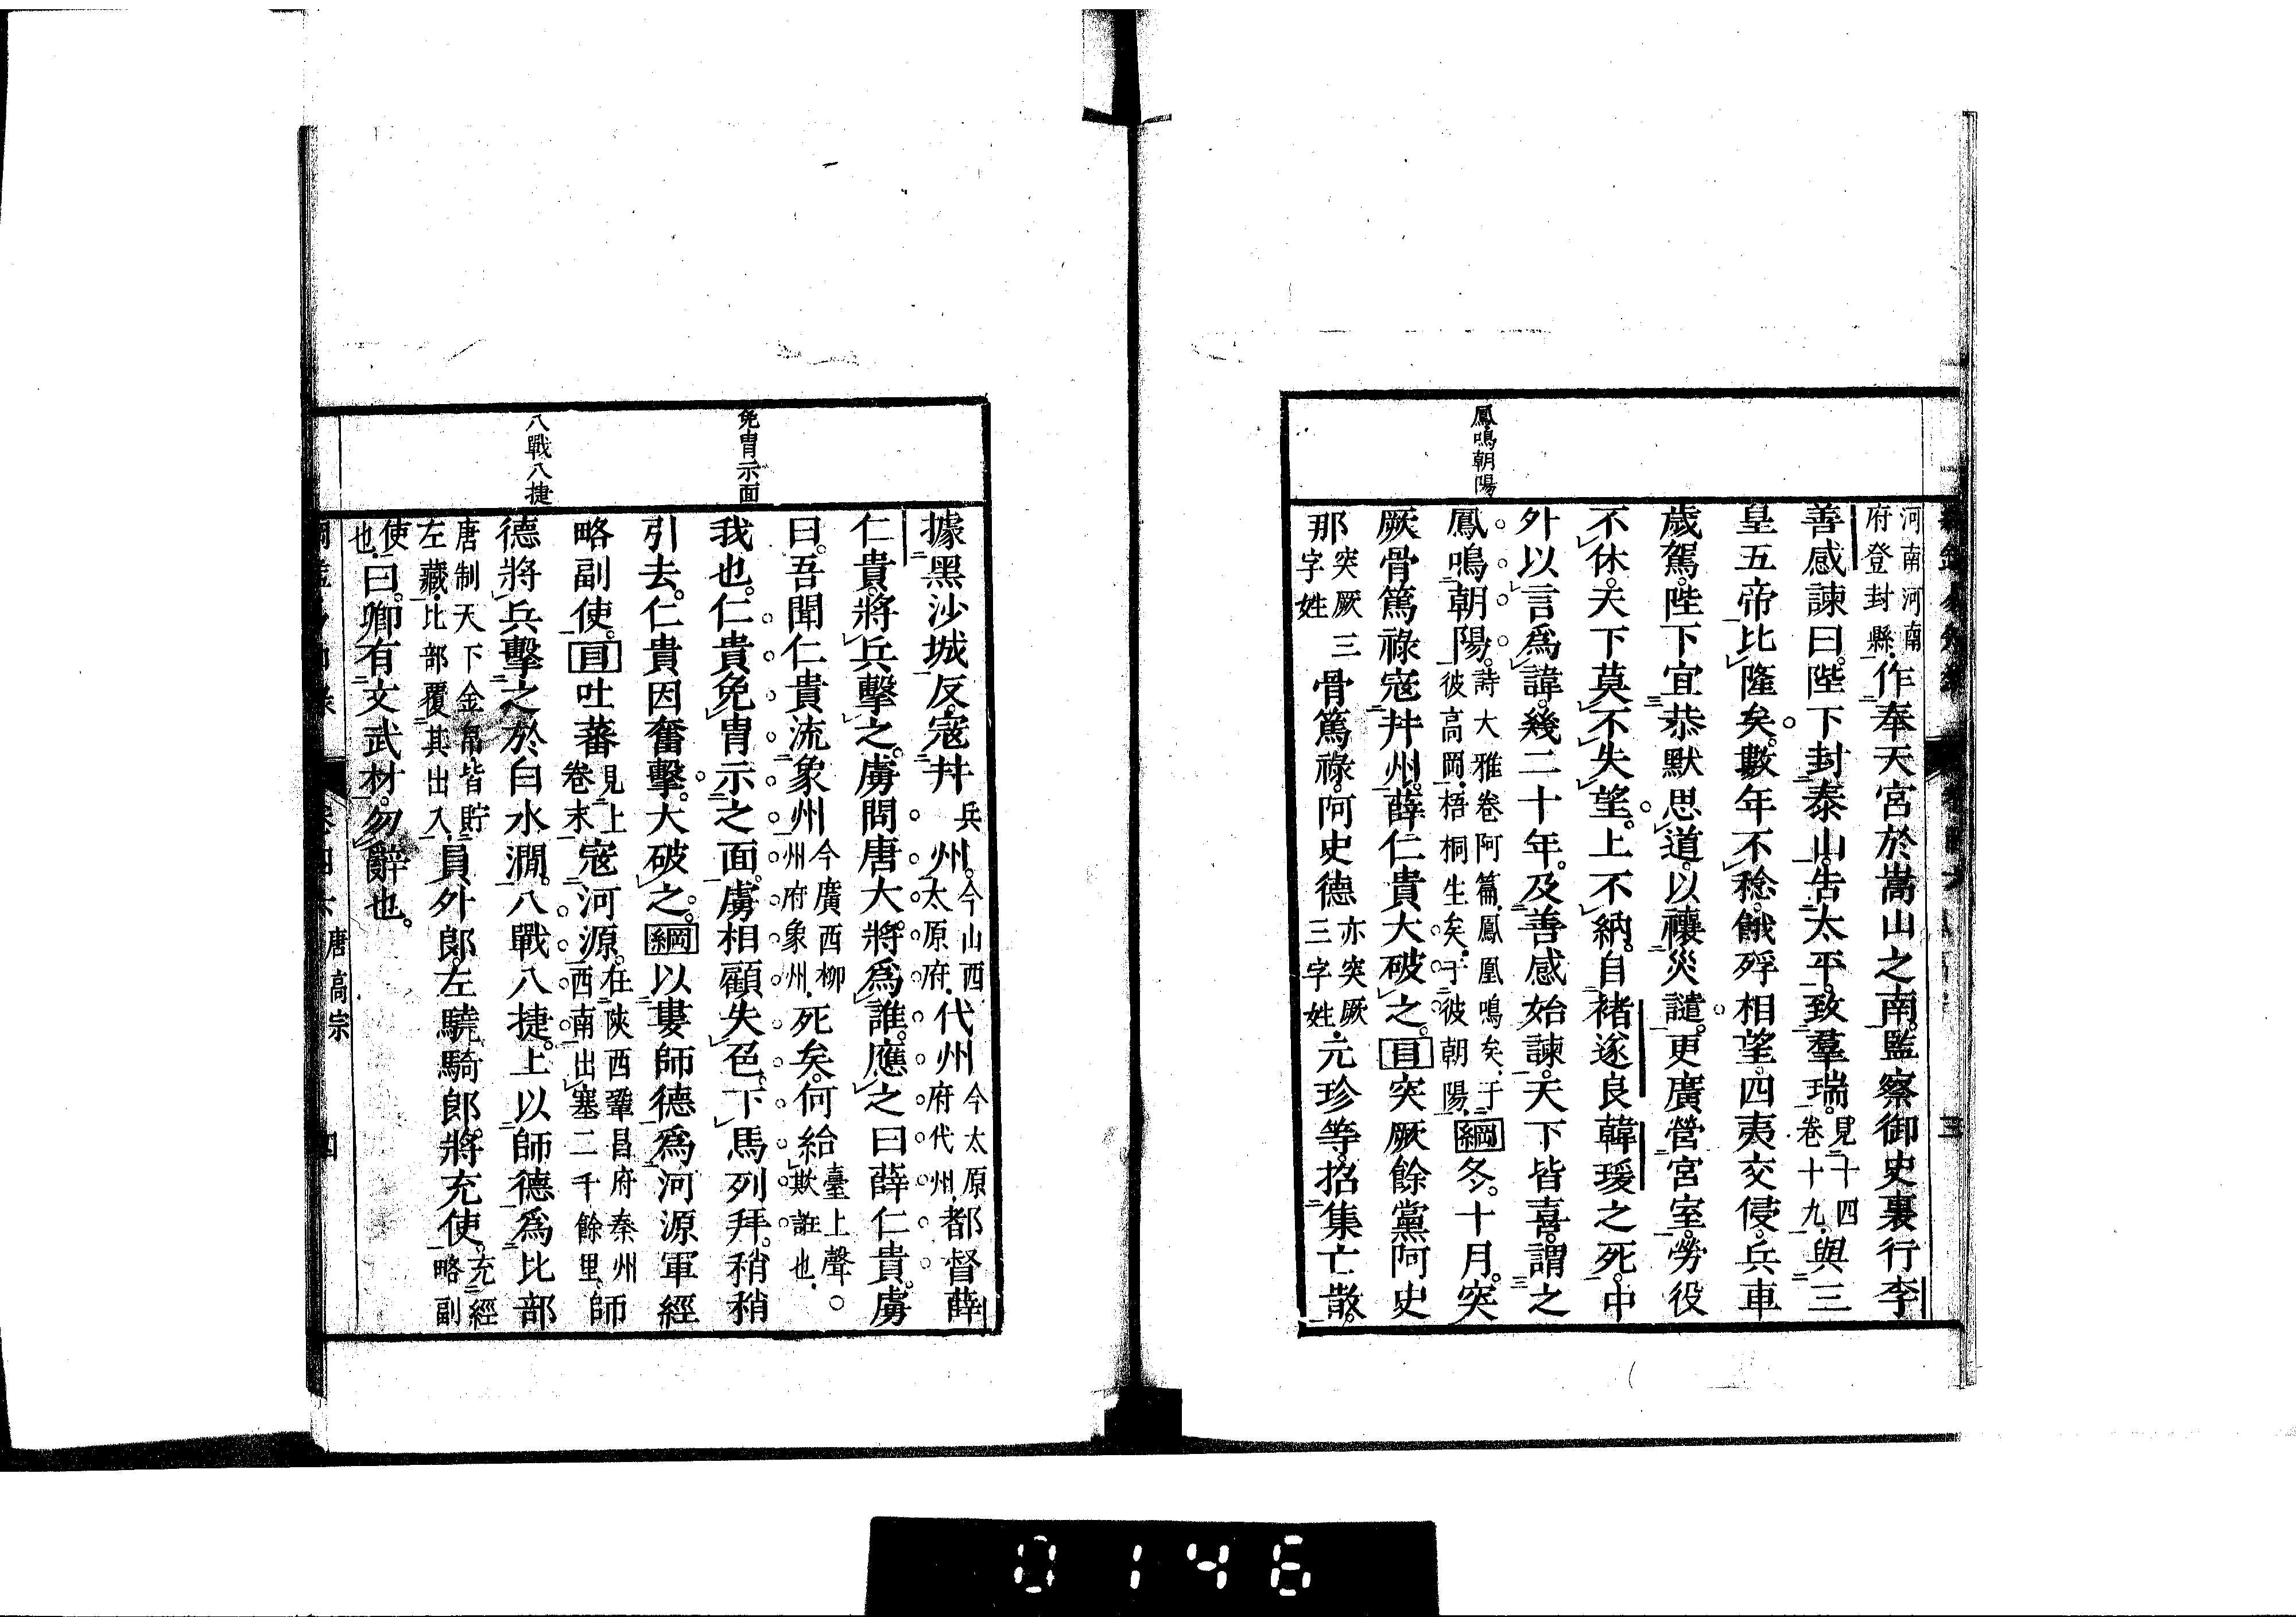 鳳鳴朝陽
河南河南
府登封縣作奉天宮於嵩山之南。監察御史裏行李
善感諫曰。陛下封泰山。告太平。致羣瑞。見十四卷十九。與三
皇五帝比隆矣。數年不稔。餓殍相望。四夷交侵。兵車
歲駕。陛下宜恭默思道。以禳災譴。更廣營宮室。勞役
不休。天下莫不失望。上不納。自褚遂良韓瑗之死。中
外以言爲諱。幾二十年。及善感始諫。天下皆喜。謂之
鳳鳴朝陽。詩大雅卷阿篇。鳳凰鳴矣。于彼高岡。梧桐生矣。于彼朝陽。綱冬。十月。突
厥骨篤祿寇幷州。薛仁貴大破之。目突厥餘黨阿史
那突厥三字姓骨篤祿。阿史德亦突厥三字姓。元珍等。招集亡散。
三
免冑示面
八戰八捷
據黑沙城反。寇幷兵州。今山西太原府。代州今太原府代州。都督薛
仁貴。將兵擊之。虜問唐大將爲誰。應之曰薛仁貴。虜
曰。吾聞仁貴流象州今廣西柳州府象州。死矣。何紿臺上聲。欺誑也。
我也。仁貴免冑示之面。虜相顧失色。下馬列拜。稍稍
引去。仁貴因奮擊。大破之。綱以婁師德爲河源軍經
略副使。目吐蕃見上卷末寇河源。在陝西鞏昌府秦州西南出塞二千餘里。師
德將兵擊之於白水澗。八戰八捷。上以師德爲比部
唐制天下金帛皆貯左藏。比部覆其出入。員外郎。左驍騎郎。將充使。充經略副
使也。曰。卿有文武材。勿辭也。
唐高宗
四
0146